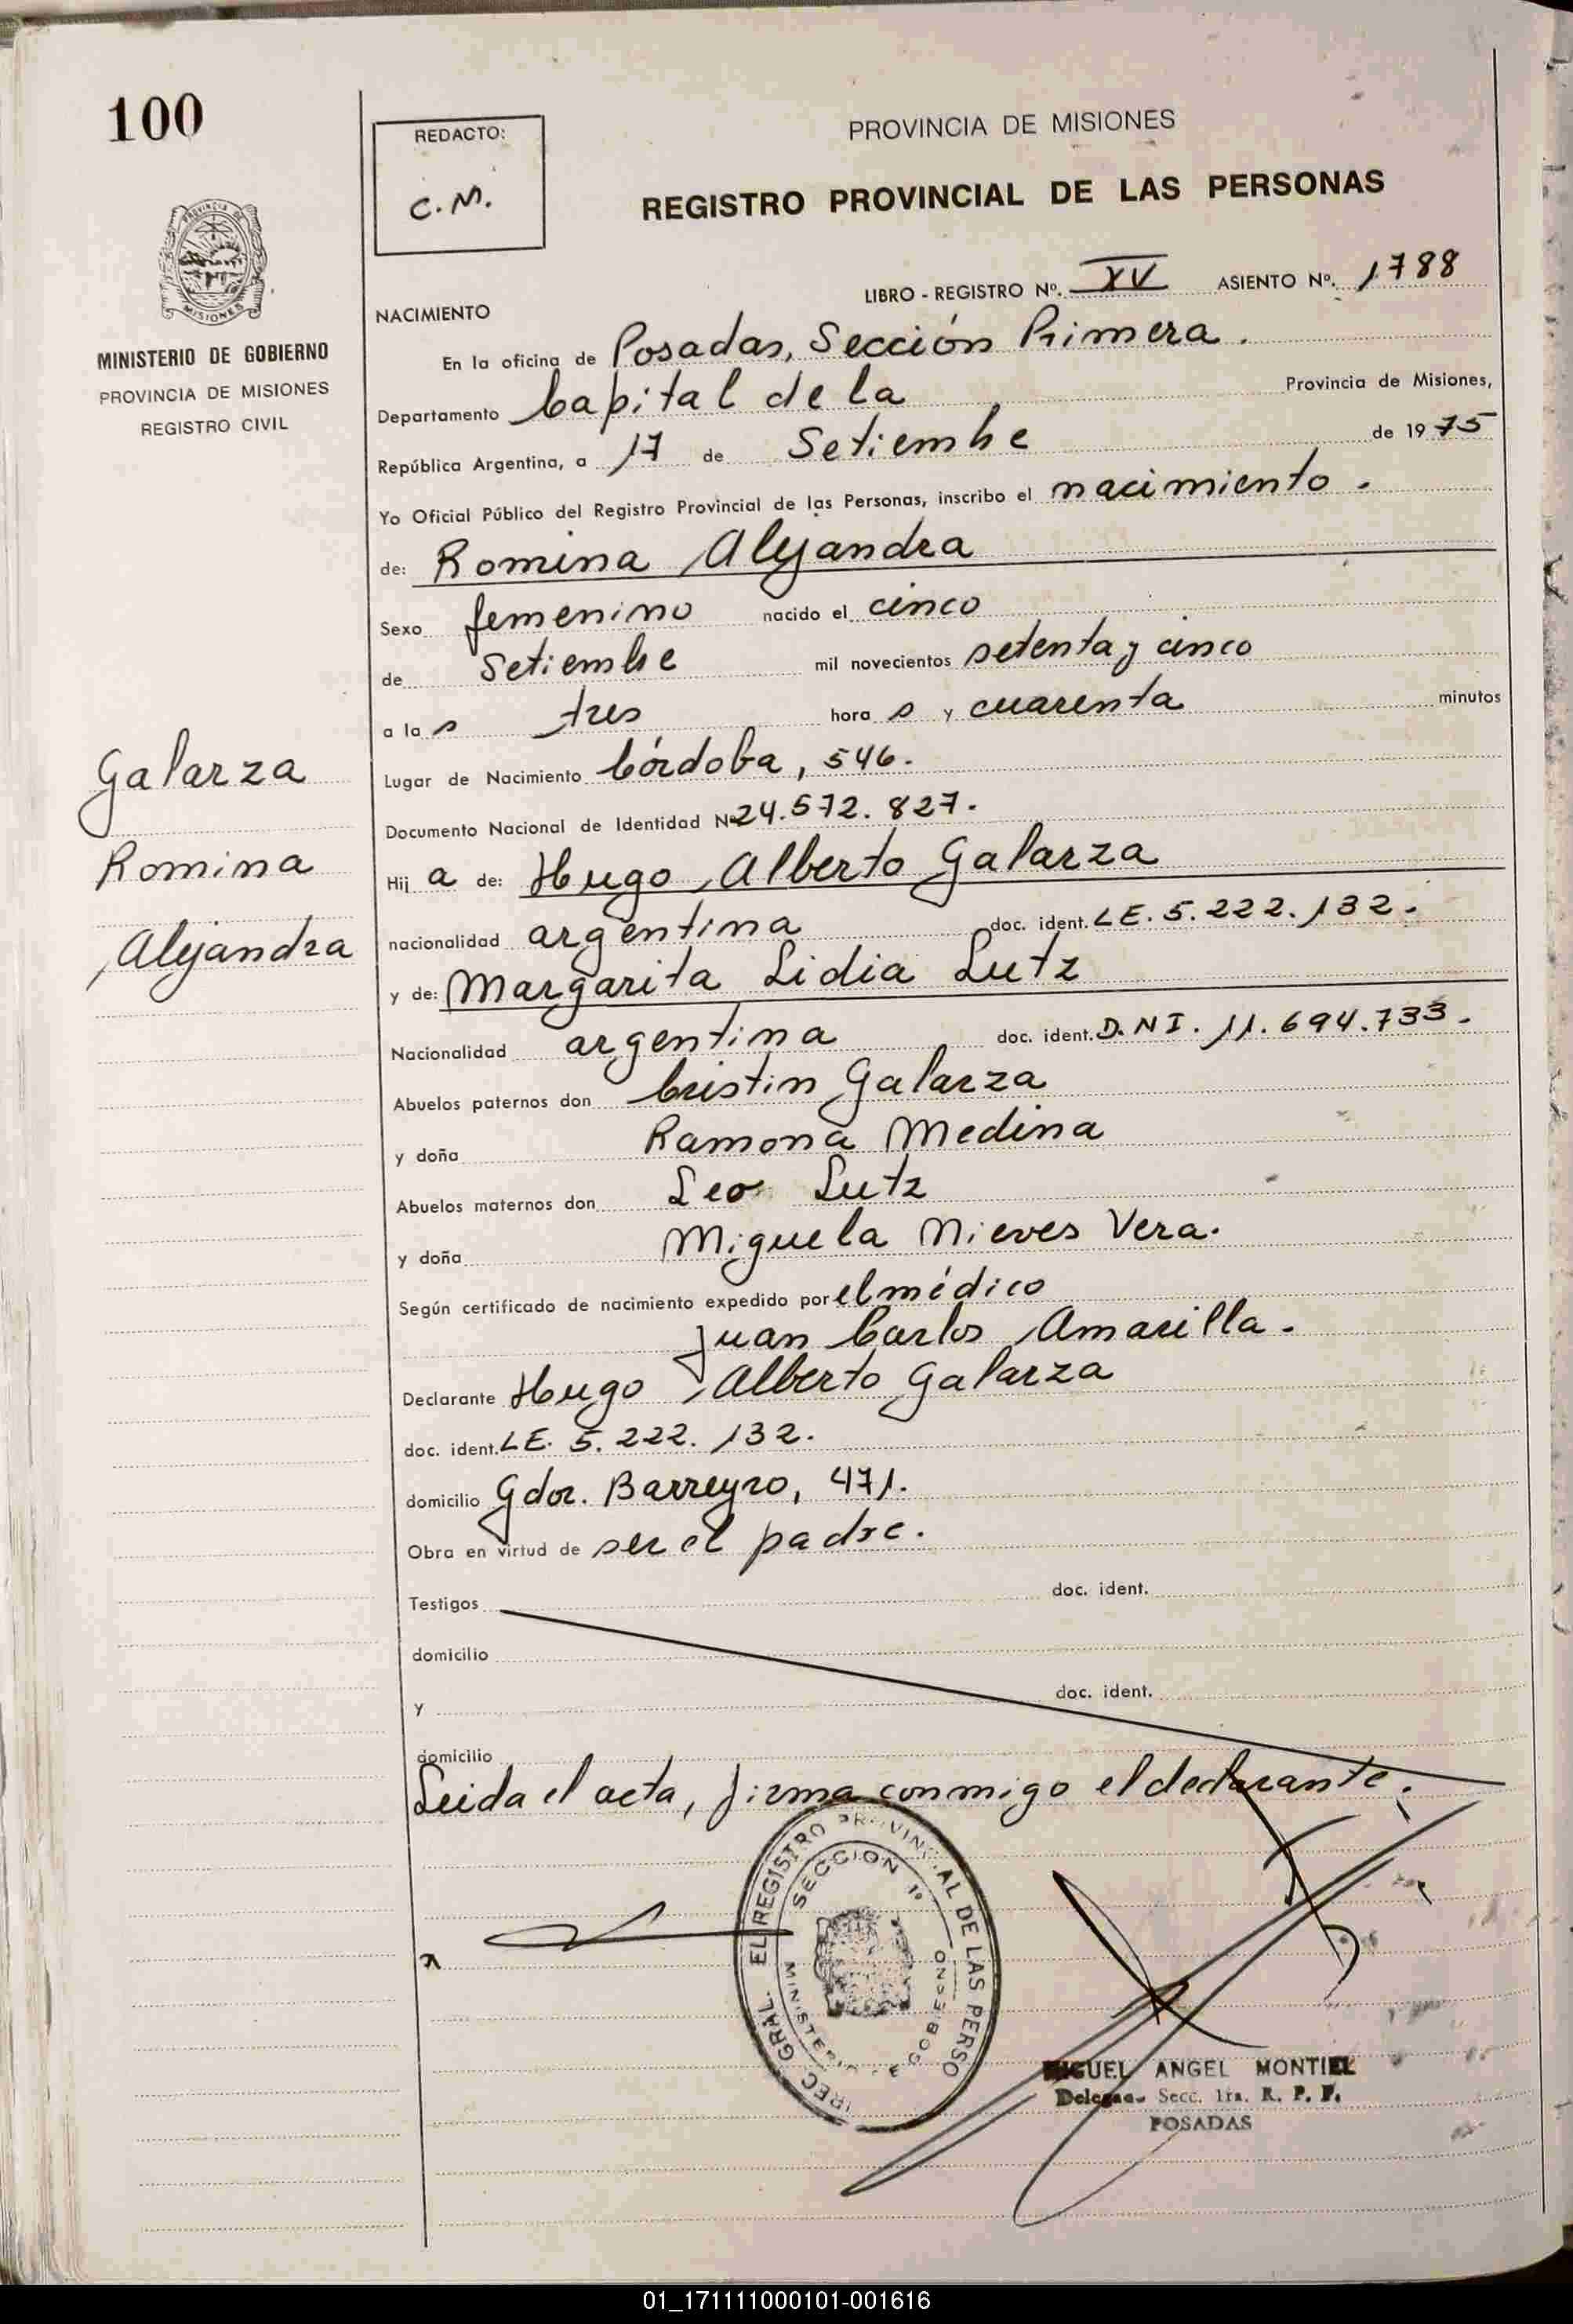 100
REDACTO:
C.M.
PROVINCIA DE MISIONES
REGISTRO PROVINCIAL DE LAS PERSONAS
PROVINCIA DE
MISIONES
MINISTERIO DE GOBIERNO
PROVINCIA DE MISIONES
REGISTRO CIVIL
LIBRO - REGISTRO Nº. XV ASIENTO Nº. 1788
NACIMIENTO
En la oficina de Posadas, Sección Primera.
Departamento Capital de la Provincia de Misiones,
República Argentina, a 17 de Setiembre de 1975
Yo Oficial Público del Registro Provincial de las Personas, inscribo el nacimiento.
de: Romina Alejandra
Sexo femenino nacido el cinco
de Setiembre mil novecientos setenta y cinco
a la s tres hora s y cuarenta minutos
Galarza
Romina
Alejandra
Lugar de Nacimiento Córdoba, 546.
Documento Nacional de Identidad Nº 24.572.827.
Hij a de: Hugo Alberto Galarza
nacionalidad argentina doc. ident. LE. 5.222.132.
y de: Margarita Lidia Lutz
Nacionalidad argentina doc. ident. D.N I. 11.694.733.
Abuelos paternos don Cristin Galarza
y doña Ramona Medina
Abuelos maternos don Leo Lutz
y doña Miguela Nieves Vera.
Según certificado de nacimiento expedido por el médico
Juan Carlos Amarilla.
Declarante Hugo Alberto Galarza
doc. ident. LE. 5.222.132.
domicilio Gdor. Barreyro, 471.
Obra en virtud de ser el padre.
Testigos doc. ident.
domicilio
y doc. ident.
domicilio
Leida el acta, firma conmigo el declarante.
REGISTRO PROVINCIAL DE LAS PERSO
SECCION 1º
MINISTERIO DE GOBIERNO
GRAL.
MIGUEL ANGEL MONTIEL
Delegado Secc. 1ra. R. P. P.
POSADAS
01_171111000101-001616